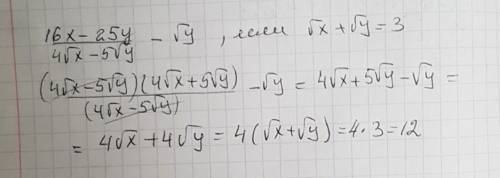 (16x - 25y)/(4√x - 5√y) - √y , если √x + √y = 3
(4√x - 5√y)(4√x + 5√y)/(4√x - 5√y) - √y = 4√x + 5√y - √y =
= 4√x + 4√y = 4(√x + √y) = 4·3 = 12